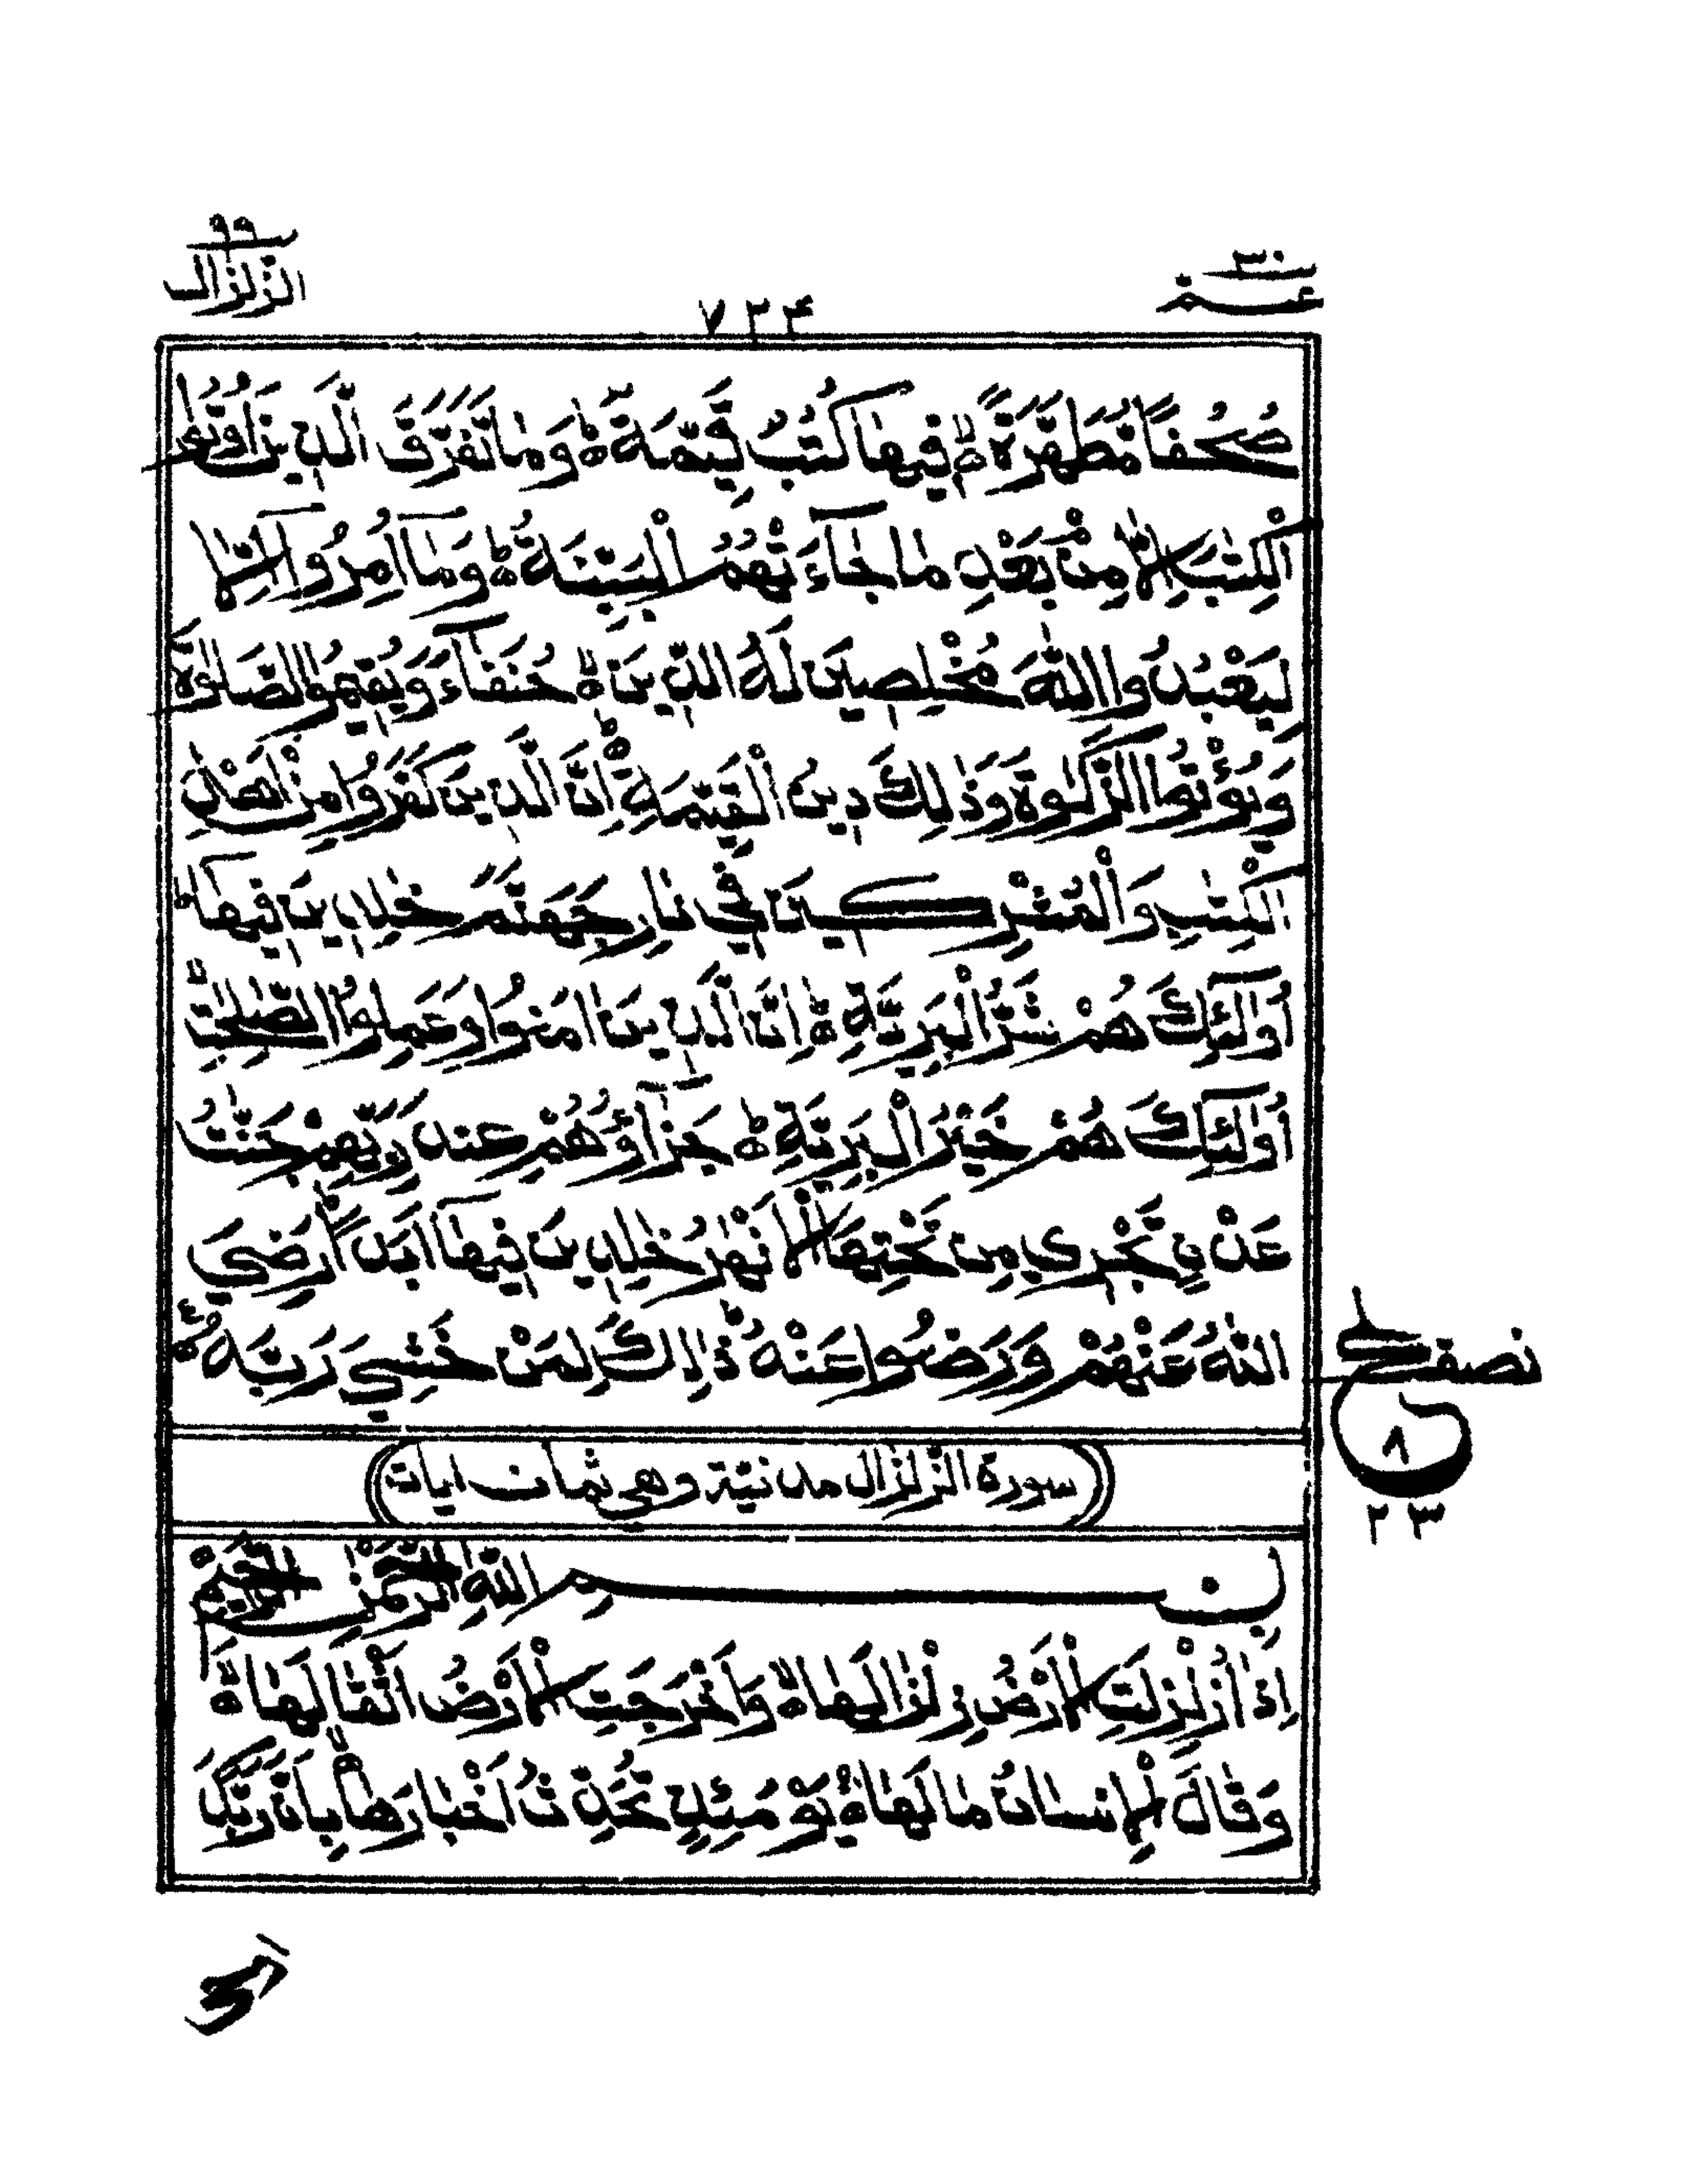 عم ٣٠
٧٣٤
٩٩ الزلزال
صُحُفًا مُّطَهَّرَةً ۙ فِيهَا كُتُبٌ قَيِّمَةٌ ؕ وَمَا تَفَرَّقَ الَّذِينَ أُوتُوا
الْكِتٰبَ إِلَّا مِنْ بَعْدِ مَا جَآءَتْهُمُ الْبَيِّنَةُ ؕ وَمَآ أُمِرُوٓا إِلَّا
لِيَعْبُدُوا اللّٰهَ مُخْلِصِينَ لَهُ الدِّينَ ۙ حُنَفَآءَ وَيُقِيمُوا الصَّلٰوةَ
وَيُؤْتُوا الزَّكٰوةَ وَذٰلِكَ دِينُ الْقَيِّمَةِ ؕ إِنَّ الَّذِينَ كَفَرُوا مِنْ أَهْلِ
الْكِتٰبِ وَالْمُشْرِكِينَ فِي نَارِ جَهَنَّمَ خٰلِدِينَ فِيهَا ؕ
أُولٰٓئِكَ هُمْ شَرُّ الْبَرِيَّةِ ؕ إِنَّ الَّذِينَ اٰمَنُوا وَعَمِلُوا الصّٰلِحٰتِ ۙ
أُولٰٓئِكَ هُمْ خَيْرُ الْبَرِيَّةِ ؕ جَزَآؤُهُمْ عِندَ رَبِّهِمْ جَنّٰتُ
عَدْنٍ تَجْرِي مِن تَحْتِهَا الْأَنْهٰرُ خٰلِدِينَ فِيهَآ أَبَدًا ؕ رَضِيَ
اللّٰهُ عَنْهُمْ وَرَضُوا عَنْهُ ؕ ذٰلِكَ لِمَنْ خَشِيَ رَبَّهُ
ع
٨
٢٣
سورة الزلزال مدنيّة وهى ثمان ايات
بِسْمِ اللّٰهِ الرَّحْمٰنِ الرَّحِيمِ
إِذَا زُلْزِلَتِ الْأَرْضُ زِلْزَالَهَا ۙ وَأَخْرَجَتِ الْأَرْضُ أَثْقَالَهَا ۙ
وَقَالَ الْإِنسَانُ مَا لَهَا ۚ يَوْمَئِذٍ تُحَدِّثُ أَخْبَارَهَا ۙ بِأَنَّ رَبَّكَ